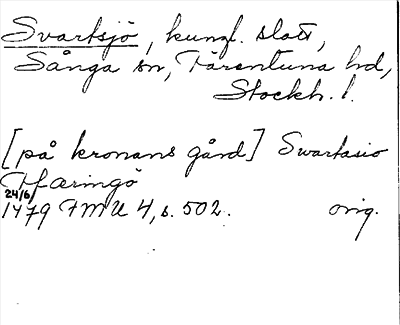 Svartsjö, kungl. slott,
Sånga sn, Färentuna hd,
Stockh. l.
[på kronans gård] Swartasio
Færingö
24/6
1479 FMU 4, s. 502. orig.